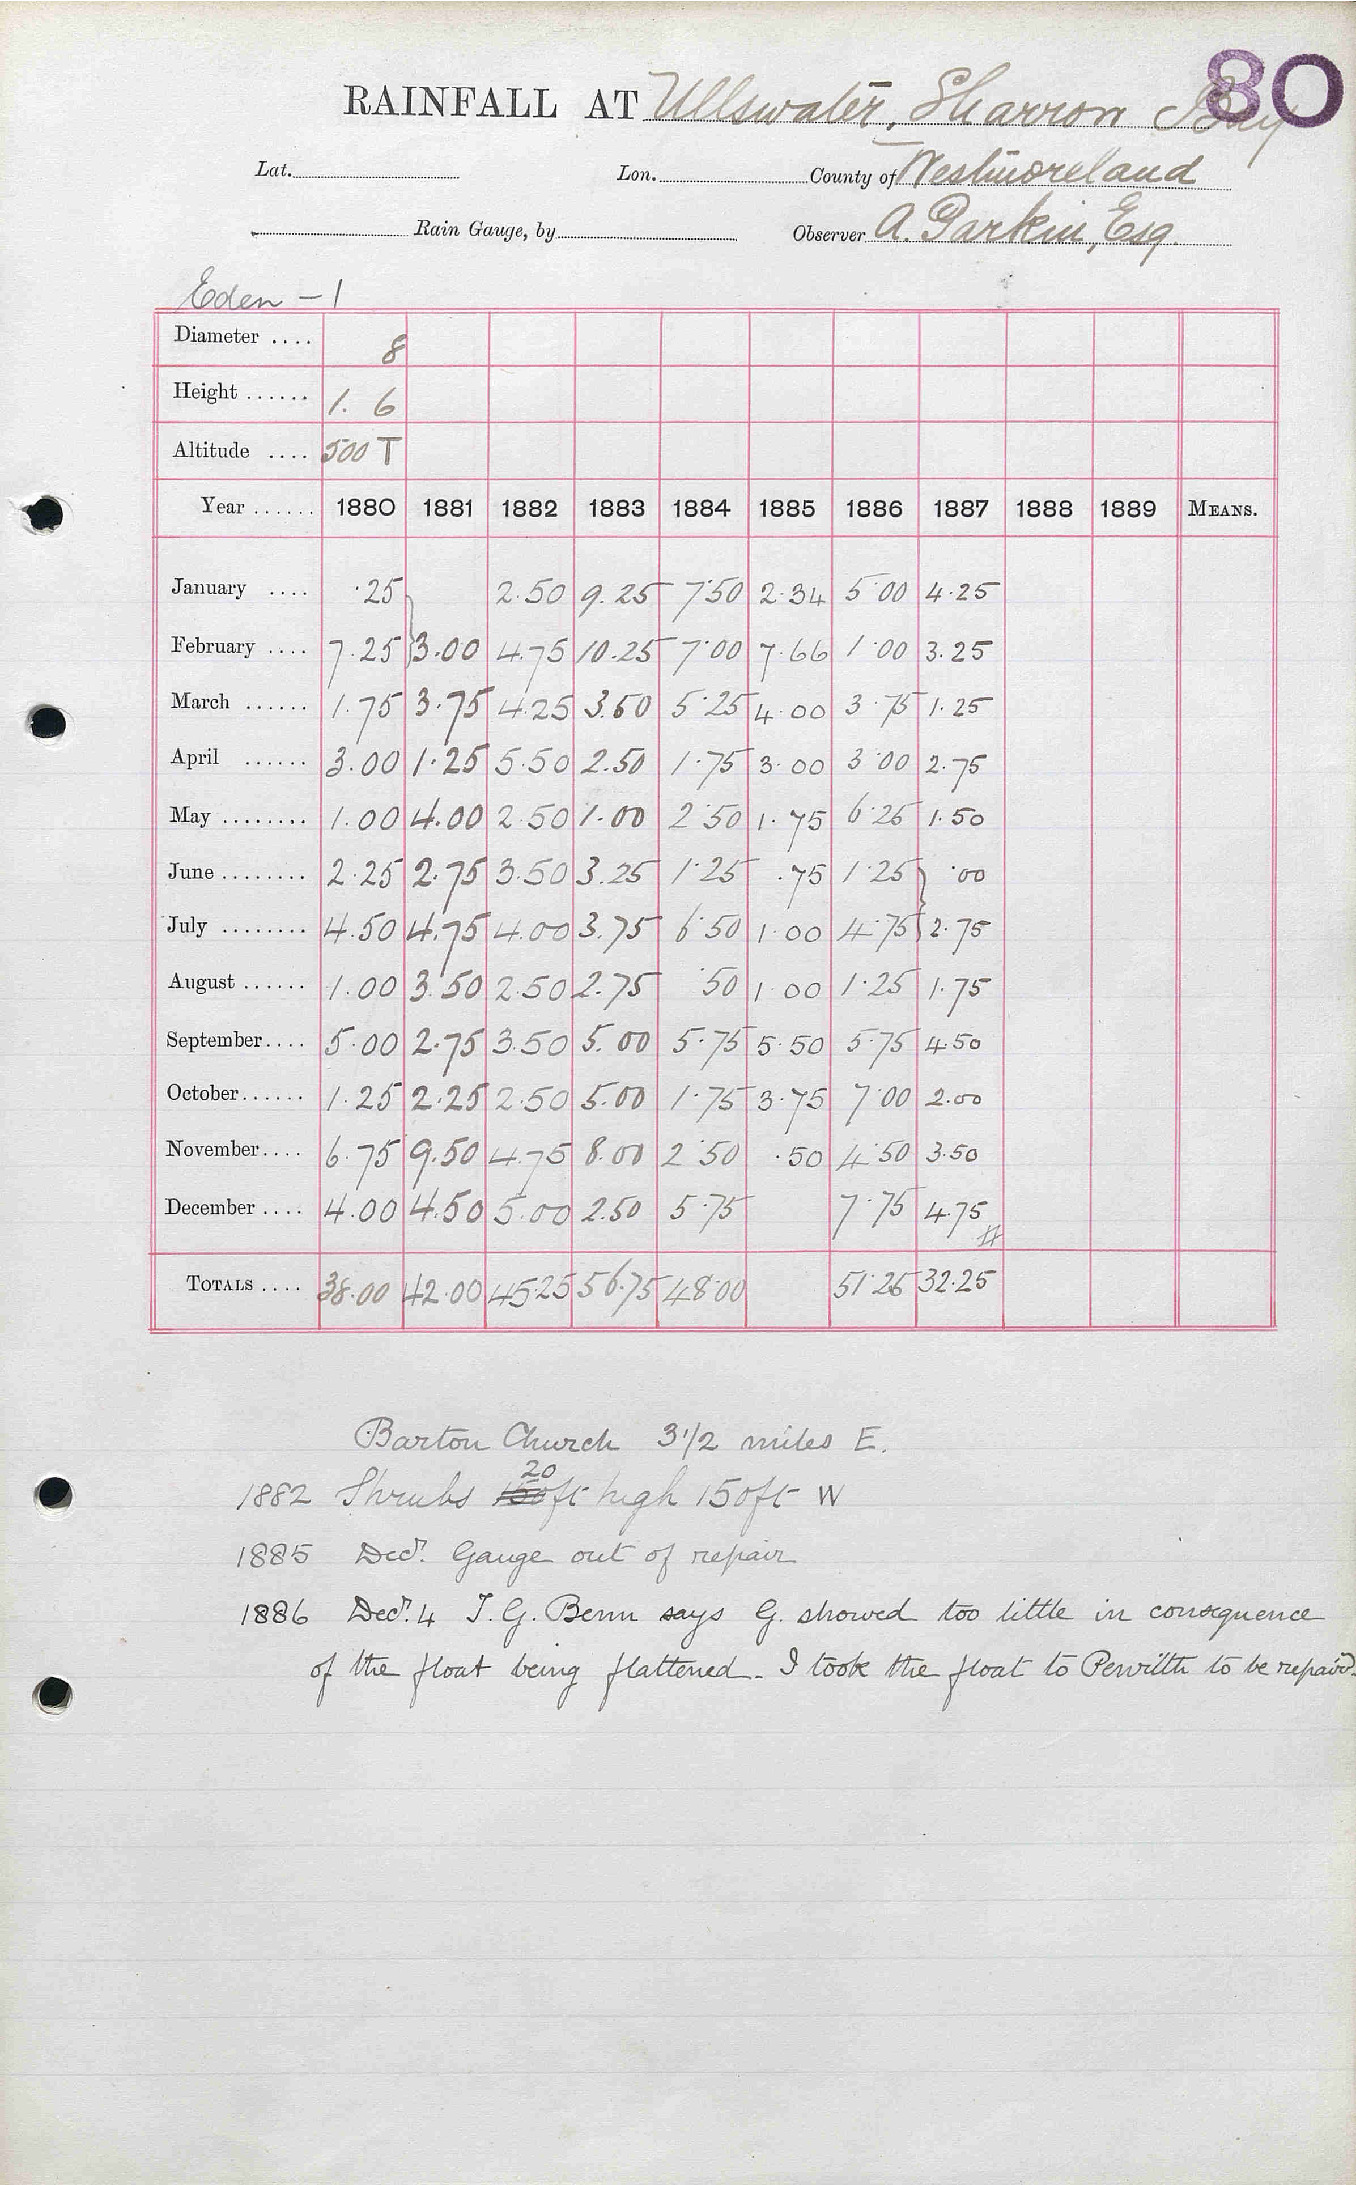 80
RAINFALL AT Ullswater, Sharron Bay
Lat. Lon. County of Westmoreland
Rain Gauge, by Observer A. Parkin, Esq.
Eden - 1
Diameter .... 8
Height ...... 1. 6
Altitude .... 500 T
Year ...... 1880 1881 1882 1883 1884 1885 1886 1887 1888 1889 MEANS.
January .... ·25 2.50 9.25 7·50 2.34 5·00 4.25
February .... 7.25 3.00 4.75 10.25 7·00 7.66 1·00 3.25
March ...... 1.75 3.75 4.25 3.50 5·25 4.00 3·75 1.25
April ...... 3.00 1.25 5.50 2.50 1·75 3.00 3·00 2.75
May ........ 1.00 4.00 2.50 1.00 2·50 1.75 6·25 1.50
June ........ 2.25 2.75 3.50 3.25 1·25 .75 1·25 ·00
July ........ 4.50 4.75 4.00 3.75 6·50 1.00 4·75 2.75
August ...... 1.00 3.50 2.50 2.75 ·50 1.00 1·25 1.75
September.... 5.00 2.75 3.50 5.00 5·75 5.50 5·75 4.50
October...... 1.25 2.25 2.50 5.00 1·75 3.75 7·00 2.00
November.... 6.75 9.50 4.75 8.00 2·50 .50 4·50 3.50
December .... 4.00 4.50 5.00 2.50 5·75 7·75 4.75
TOTALS .... 38.00 42.00 45.25 56.75 48·00 51·25 32.25
Barton Church 3 1/2 miles E.
20
1882 Shrubs ft high 150ft W
1885 Decr. Gauge out of repair
1886 Decr. 4 T. G. Benn says G. showed too little in consequence
of the float being flattened. I took the float to Penrith to be repaired.